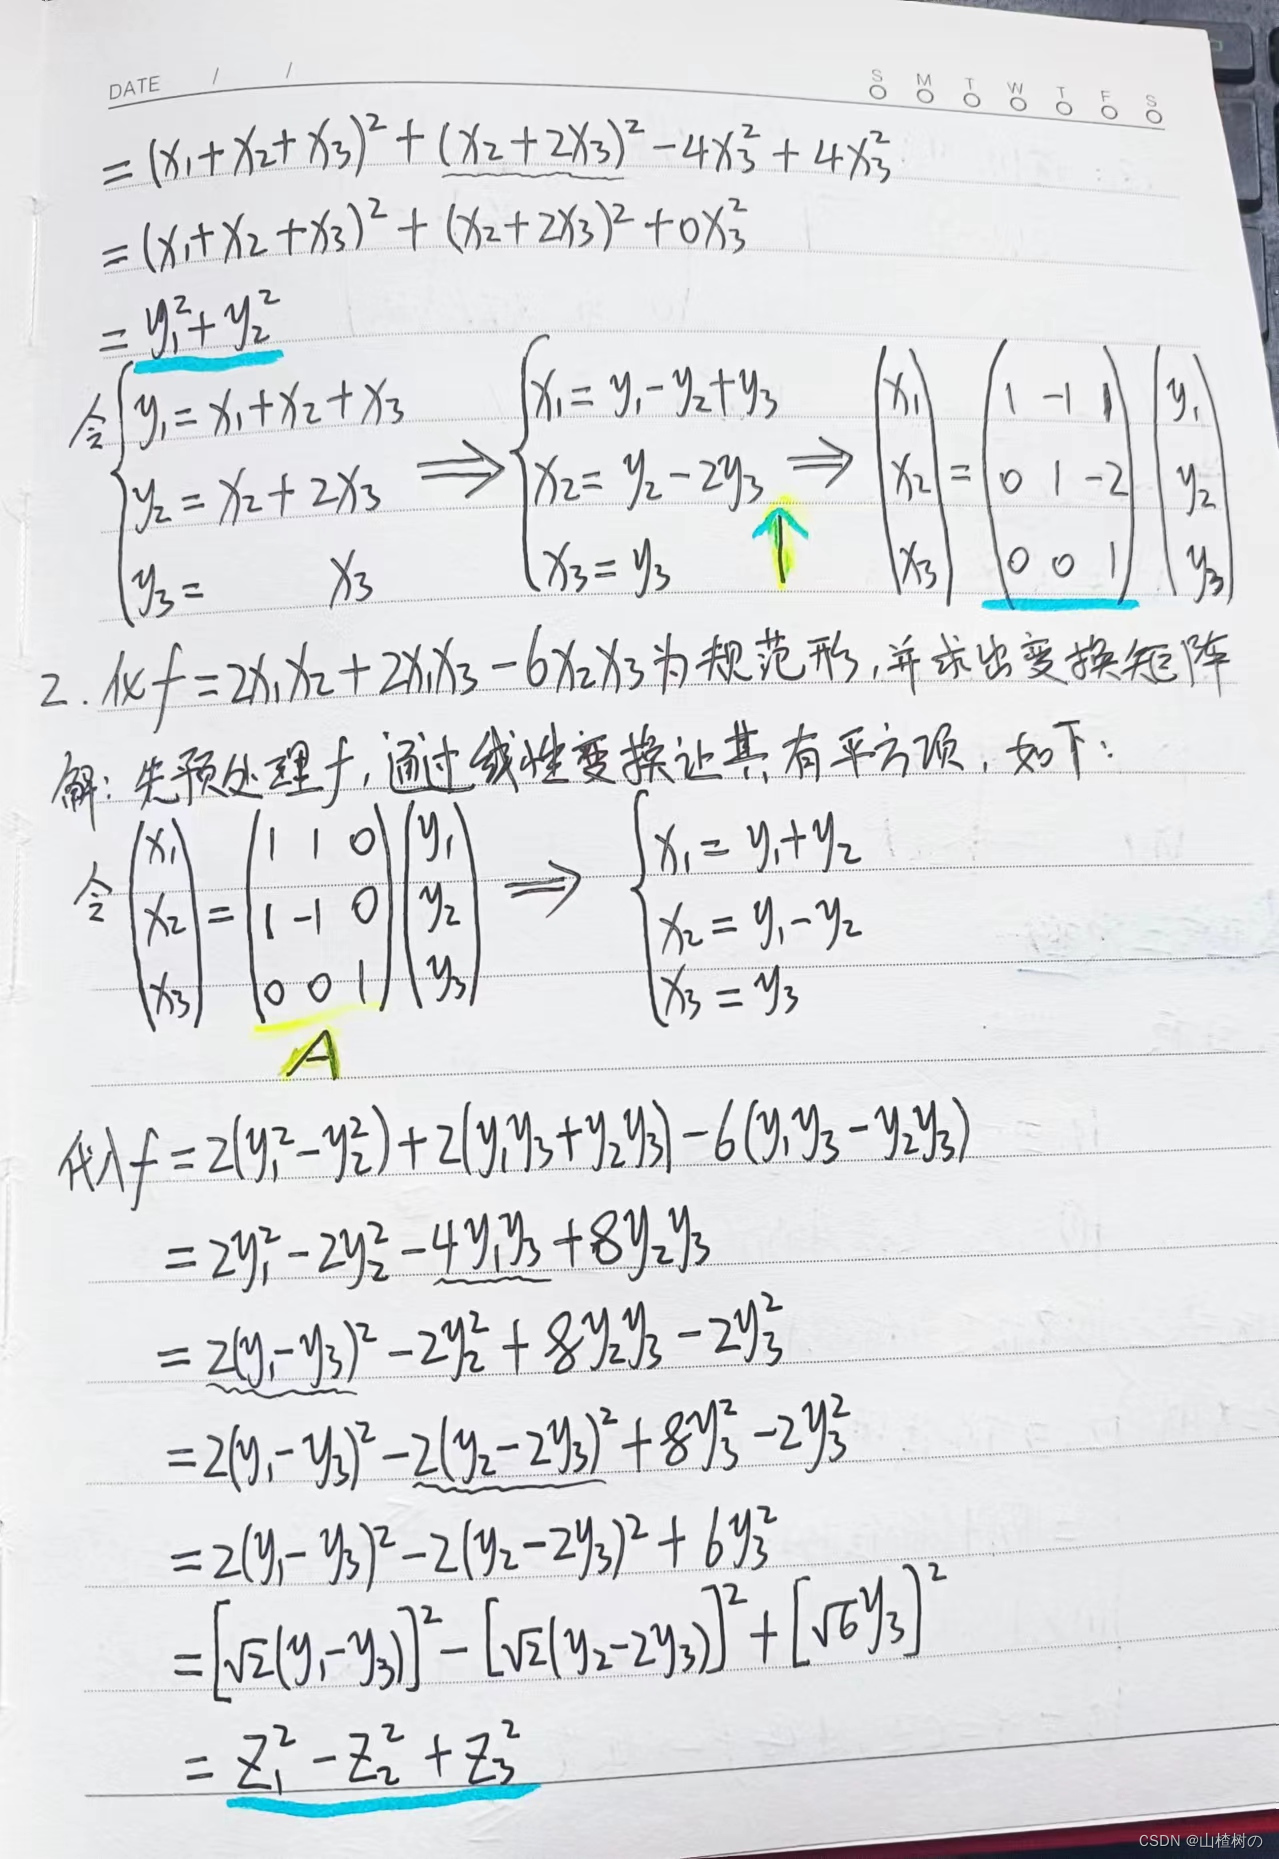 DATE / /
S M T W T F S
= (x₁+x₂+x₃)² + (x₂+2x₃)² - 4x₃² + 4x₃²
= (x₁+x₂+x₃)² + (x₂+2x₃)² + 0x₃²
= y₁² + y₂²
令 { y₁ = x₁+x₂+x₃ ⟹ { x₁ = y₁-y₂+y₃ ⟹ (x₁ = (1 -1 1) (y₁
y₂ = x₂+2x₃ x₂ = y₂-2y₃ x₂ 0 1 -2 y₂
y₃ = x₃ x₃ = y₃ ↑ x₃) 0 0 1 y₃)
2. 化f = 2x₁x₂+2x₁x₃-6x₂x₃为规范形,并求出变换矩阵
解: 先预处理f,通过线性变换让其有平方项,如下:
令 (x₁ = (1 1 0) (y₁ ⟹ { x₁ = y₁+y₂
x₂ 1 -1 0 y₂ x₂ = y₁-y₂
x₃) 0 0 1 y₃) x₃ = y₃
A
代入f = 2(y₁²-y₂²)+2(y₁y₃+y₂y₃)-6(y₁y₃-y₂y₃)
= 2y₁²-2y₂²-4y₁y₃+8y₂y₃
= 2(y₁-y₃)²-2y₂²+8y₂y₃-2y₃²
= 2(y₁-y₃)²-2(y₂-2y₃)²+8y₃²-2y₃²
= 2(y₁-y₃)²-2(y₂-2y₃)²+6y₃²
= [√2(y₁-y₃)]²-[√2(y₂-2y₃)]²+[√6y₃]²
= z₁²-z₂²+z₃²
CSDN @山楂树の